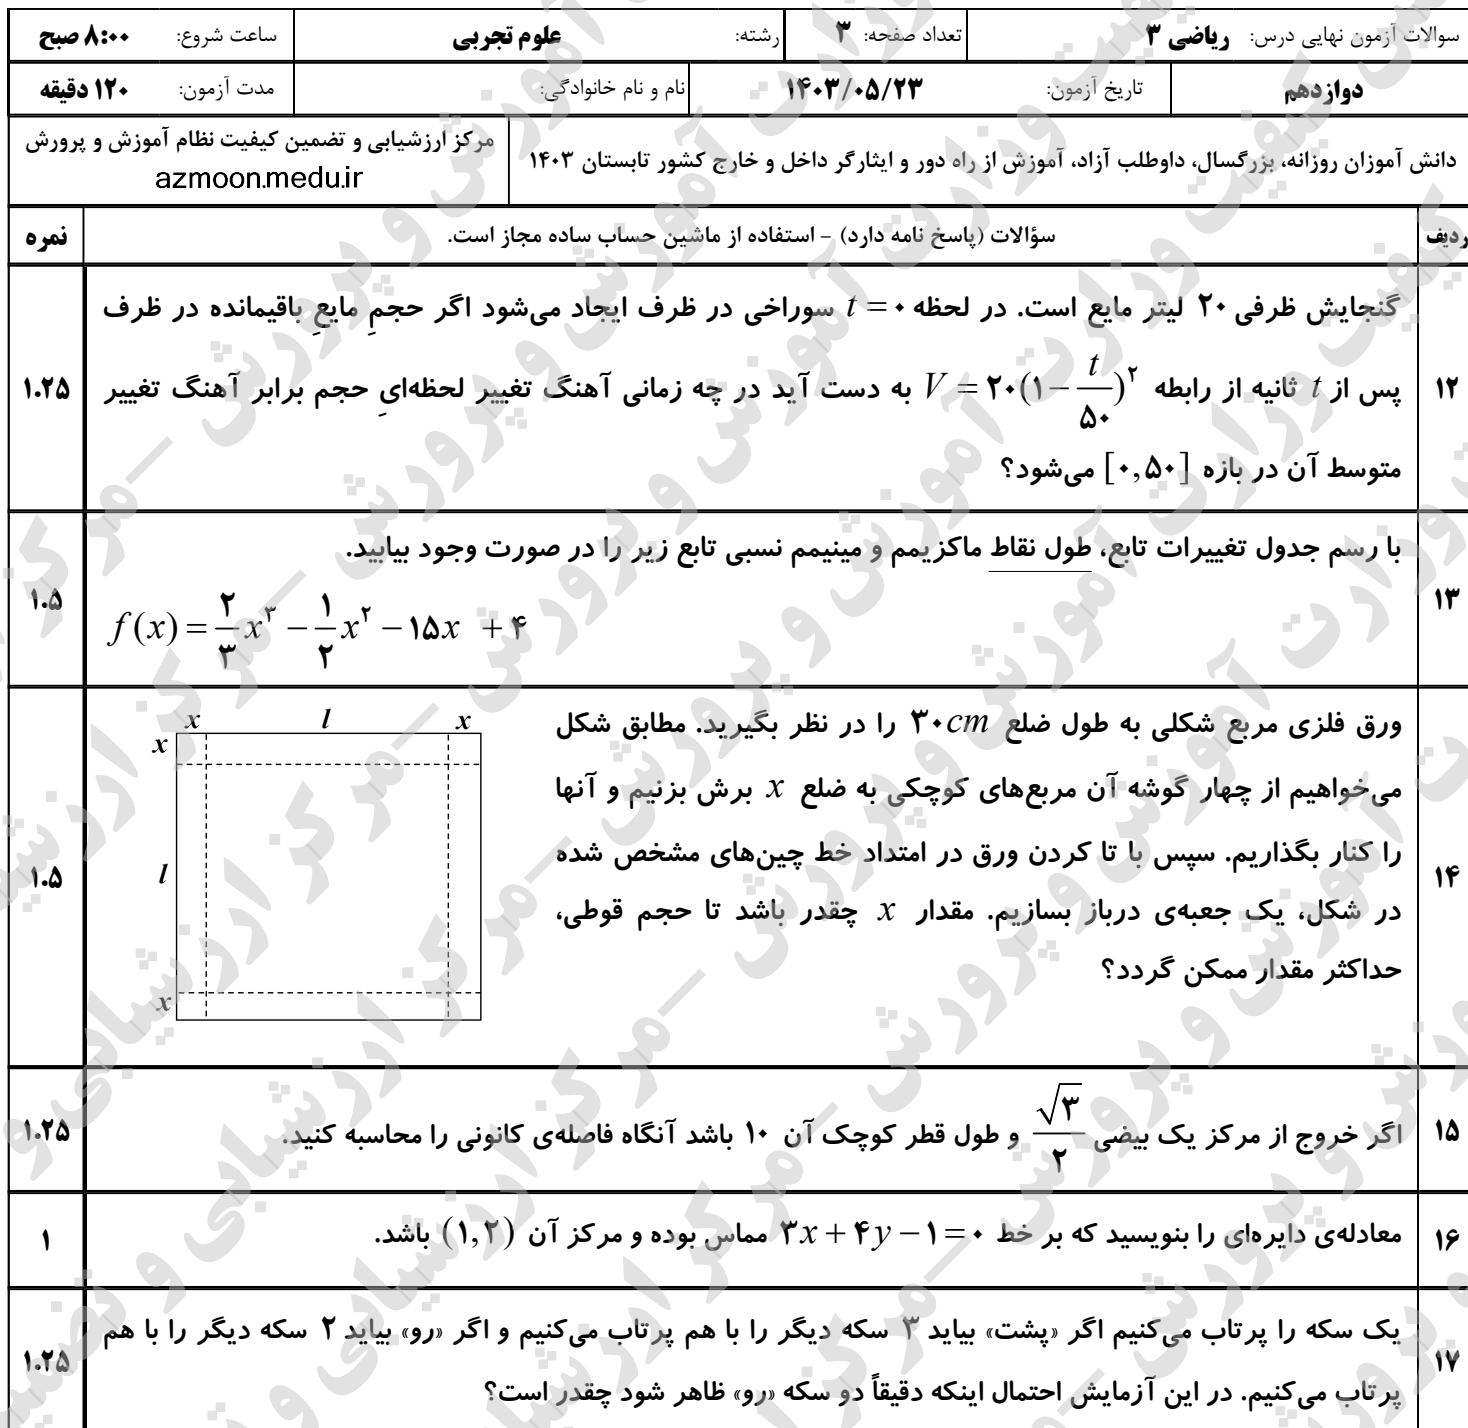 سوالات آزمون نهایی درس: ریاضی ۳ تعداد صفحه: ۳ رشته: علوم تجربی ساعت شروع: ۸:۰۰ صبح
دوازدهم تاریخ آزمون: ۱۴۰۳/۰۵/۲۳ نام و نام خانوادگی: مدت آزمون: ۱۲۰ دقیقه
دانش آموزان روزانه، بزرگسال، داوطلب آزاد، آموزش از راه دور و ایثارگر داخل و خارج کشور تابستان ۱۴۰۳ مرکز ارزشیابی و تضمین کیفیت نظام آموزش و پرورش
azmoon.medu.ir
ردیف سؤالات (پاسخ نامه دارد) - استفاده از ماشین حساب ساده مجاز است. نمره
گنجایش ظرفی ۲۰ لیتر مایع است. در لحظه t = ۰ سوراخی در ظرف ایجاد می‌شود اگر حجمِ مایعِ باقیمانده در ظرف
۱۲ پس از t ثانیه از رابطه V = ۲۰(۱ − t/۵۰)^۲ به دست آید در چه زمانی آهنگ تغییر لحظه‌ایِ حجم برابر آهنگ تغییر ۱.۲۵
متوسط آن در بازه [۰,۵۰] می‌شود؟
با رسم جدول تغییرات تابع، طول نقاط ماکزیمم و مینیمم نسبی تابع زیر را در صورت وجود بیابید.
۱۳ f(x) = ۲/۳ x^۳ − ۱/۲ x^۲ − ۱۵x + ۴ ۱.۵
ورق فلزی مربع شکلی به طول ضلع ۳۰cm را در نظر بگیرید. مطابق شکل
می‌خواهیم از چهار گوشه آن مربع‌های کوچکی به ضلع x برش بزنیم و آنها
را کنار بگذاریم. سپس با تا کردن ورق در امتداد خط چین‌های مشخص شده
۱۴ در شکل، یک جعبه‌ی درباز بسازیم. مقدار x چقدر باشد تا حجم قوطی، ۱.۵
حداکثر مقدار ممکن گردد؟
x l x
x
l
x
۱۵ اگر خروج از مرکز یک بیضی √۳/۲ و طول قطر کوچک آن ۱۰ باشد آنگاه فاصله‌ی کانونی را محاسبه کنید. ۱.۲۵
۱۶ معادله‌ی دایره‌ای را بنویسید که بر خط ۳x + ۴y − ۱ = ۰ مماس بوده و مرکز آن (۱,۲) باشد. ۱
یک سکه را پرتاب می‌کنیم اگر «پشت» بیاید ۳ سکه دیگر را با هم پرتاب می‌کنیم و اگر «رو» بیاید ۲ سکه دیگر را با هم
۱۷ پرتاب می‌کنیم. در این آزمایش احتمال اینکه دقیقاً دو سکه «رو» ظاهر شود چقدر است؟ ۱.۲۵